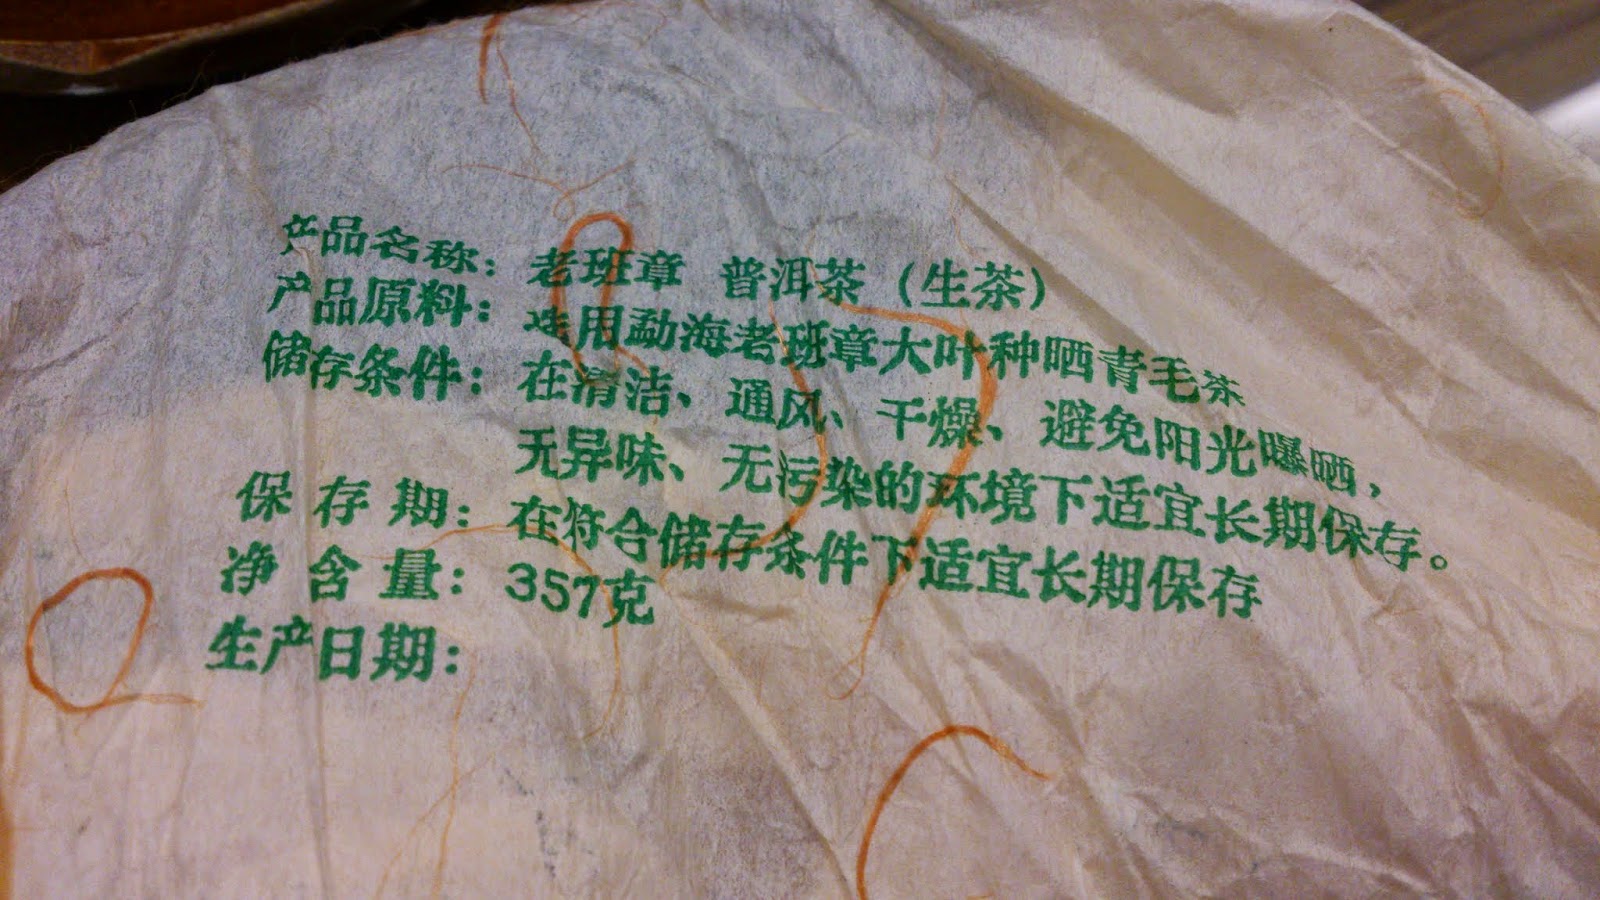 产品名称：老班章 普洱茶（生茶）
产品原料：选用勐海老班章大叶种晒青毛茶
储存条件：在清洁、通风、干燥、避免阳光曝晒，
无异味、无污染的环境下适宜长期保存。
保存期：在符合储存条件下适宜长期保存
净含量：357克
生产日期：